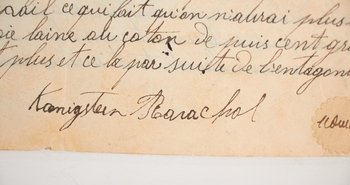 ail ce qui fait qu'on n'aurai plus
laine au coton de puis cent gr
plus et ce la par suite de l'entagoni
Kœnigstein Ravachol